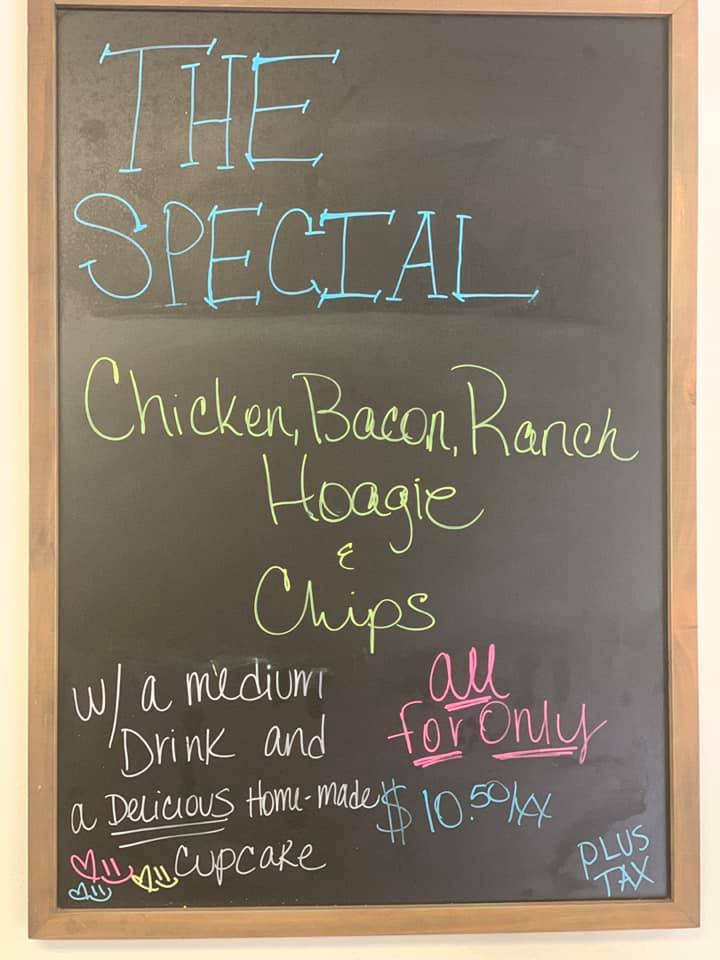 THE
SPECIAL
Chicken, Bacon, Ranch
Hoagie
&
Chips
w/ a medium
Drink and
a Delicious Home-made
cupcake
all
for Only
$10.50/xx
PLUS
TAX